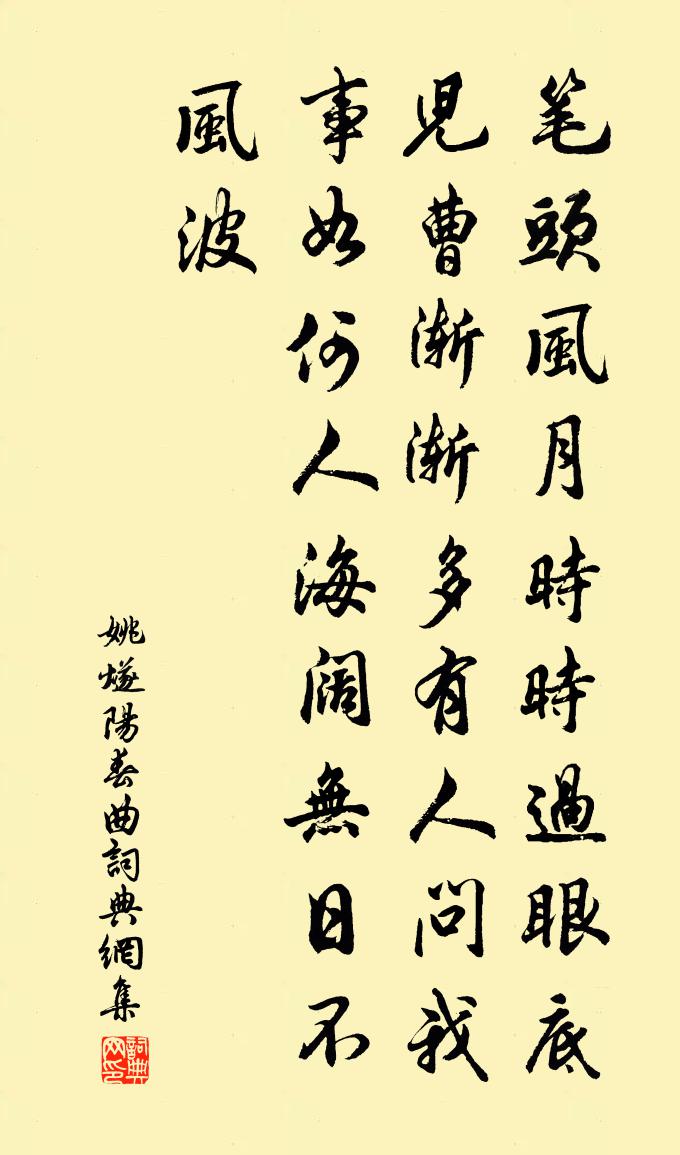 笔頭風月時時過眼底
児曹漸漸多有人問我
事如何人海闊無日不
風波
姚燧陽春曲詞典網集
詞典网印